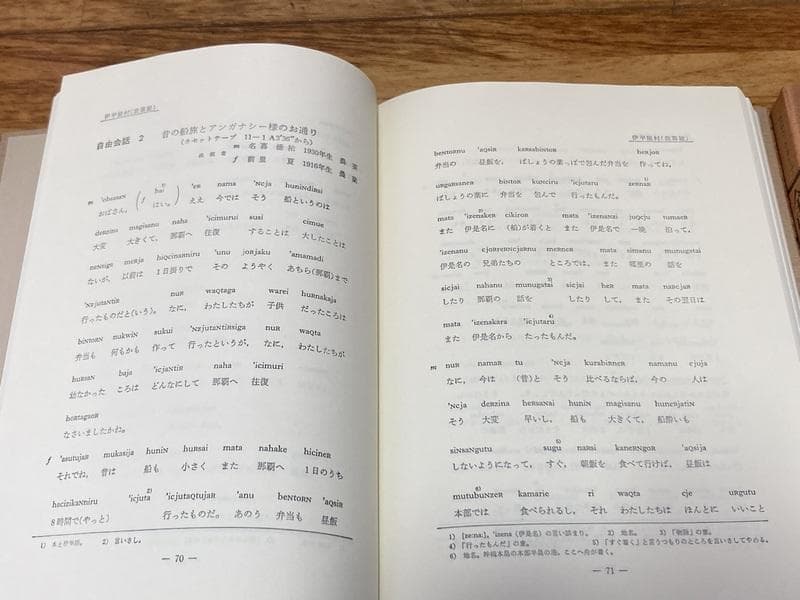 伊平屋村(我喜屋)
自由会話 2 昔の船旅とアンガナシー様のお通り
(カセットテープ 11－1 A2'36"から)
m 名嘉 徳祐 1930年生 農業
f 前里 夏 1916年生 農業
m 'obasaɴ (f hai1) 'eʀ nama 'ɴcja huniɴdiʀsi
おばさん, はい。 ええ 今では そう 船というのは
deʀzina magisanu naha 'icimurui suai cimue
大変 大きくて, 那覇へ 往復 することは 大したことは
neɴsiga meʀja hiQcinaʀmiru 'unu joʀjaku 'amamadi
ないが, 以前は 1日掛りで その ようやく あちら(那覇)まで
'ɴzjutaɴtiʀ nuʀ waQtaga warei huʀnakaja
行ったものだと(いう)。 なに, わたしたちが 子供 だったころは
biɴtoʀɴ nukwiɴ sukui 'ɴzjutaɴtiʀsiga nuʀ waQta
弁当も 何もかも 作って 行ったというが, なに, わたしたちが
huʀsaɴ baja 'icjaɴtiʀ naha 'icimuri
幼なかった ころは どんなにして 那覇へ 往復
heʀtagaeʀ
なさいましたかね。
f 'asutujaʀ mukasija huniɴ huʀsai mata nahake hicineʀ
それでね, 昔は 船も 小さく また 那覇へ 1日のうち
hacizikaɴniru 'icjuta2) 'icjutaQtujaʀ 'anu beɴtoʀɴ 'aQsiʀ
8時間で(やっと) 行ったものだ。 あのう 弁当も 昼飯
1) 本土共通語。 2) 言いさし。
― 70 ―
伊平屋村(我喜屋)
beɴtoʀnu 'aQsiʀ karsabiɴtoʀ heʀjoʀ
弁当の 昼飯を, ばしょうの葉っぱで包んだ弁当を 作ってね,
uɴgaʀsaneʀ biɴtoʀ kuɴciru 'icjutaru zeʀnaʀ1)
ばしょうの葉に 弁当を 包んで 行ったもんだ。
mata 'izenakeʀ2) cikiroʀ mata 'izenaɴzi juQcju tumaeʀ
また 伊是名に (船)が着くと また 伊是名で 一晩 泊って,
'izenanu cjoʀreʀɴcjaʀnu meʀneʀ mata simanu munugatai
伊是名の 兄弟たちの ところでは, また 郷里の 話を
sicjai nahanu munugatai3) sicjai heʀ mata naʀcjaʀ
したり 那覇の 話を したり して, また その翌日は
mata 'izenakara 'icjutaru4)
また 伊是名から たったもんだ。
m nuʀ namaʀ tu 'ɴcja kurabiʀneʀ namanu cjuja
なに, 今は (昔)と そう 比べるならば, 今の 人は
'ɴcja deʀzina heʀsaɴai huniɴ magisanu huneʀjatiɴ
そう 大変 早いし, 船も 大きくて, 船酔いも
siɴsaɴgutu sugu5) naʀsi kaneʀɴgoʀ 'aQsija
しないようになって, すぐ, 朝飯を 食べて行けば, 昼飯は
mutubuɴzeʀ6) kamarie ri waQta cje uʀgutu
本部では 食べられるし, それ わたしたちは ほんとに いいこと
1) [zeːnaː], 'izena (伊是名)の言い詰まり。 2) 地名。 3) 「物語」の意。
4) 「行ったもんだ」の意。 5) 「すぐ着く」と言うつもりのところを言いさしてやめる。
6) 地名。沖縄本島の本部半島の港。ここへ舟が着く。
― 71 ―